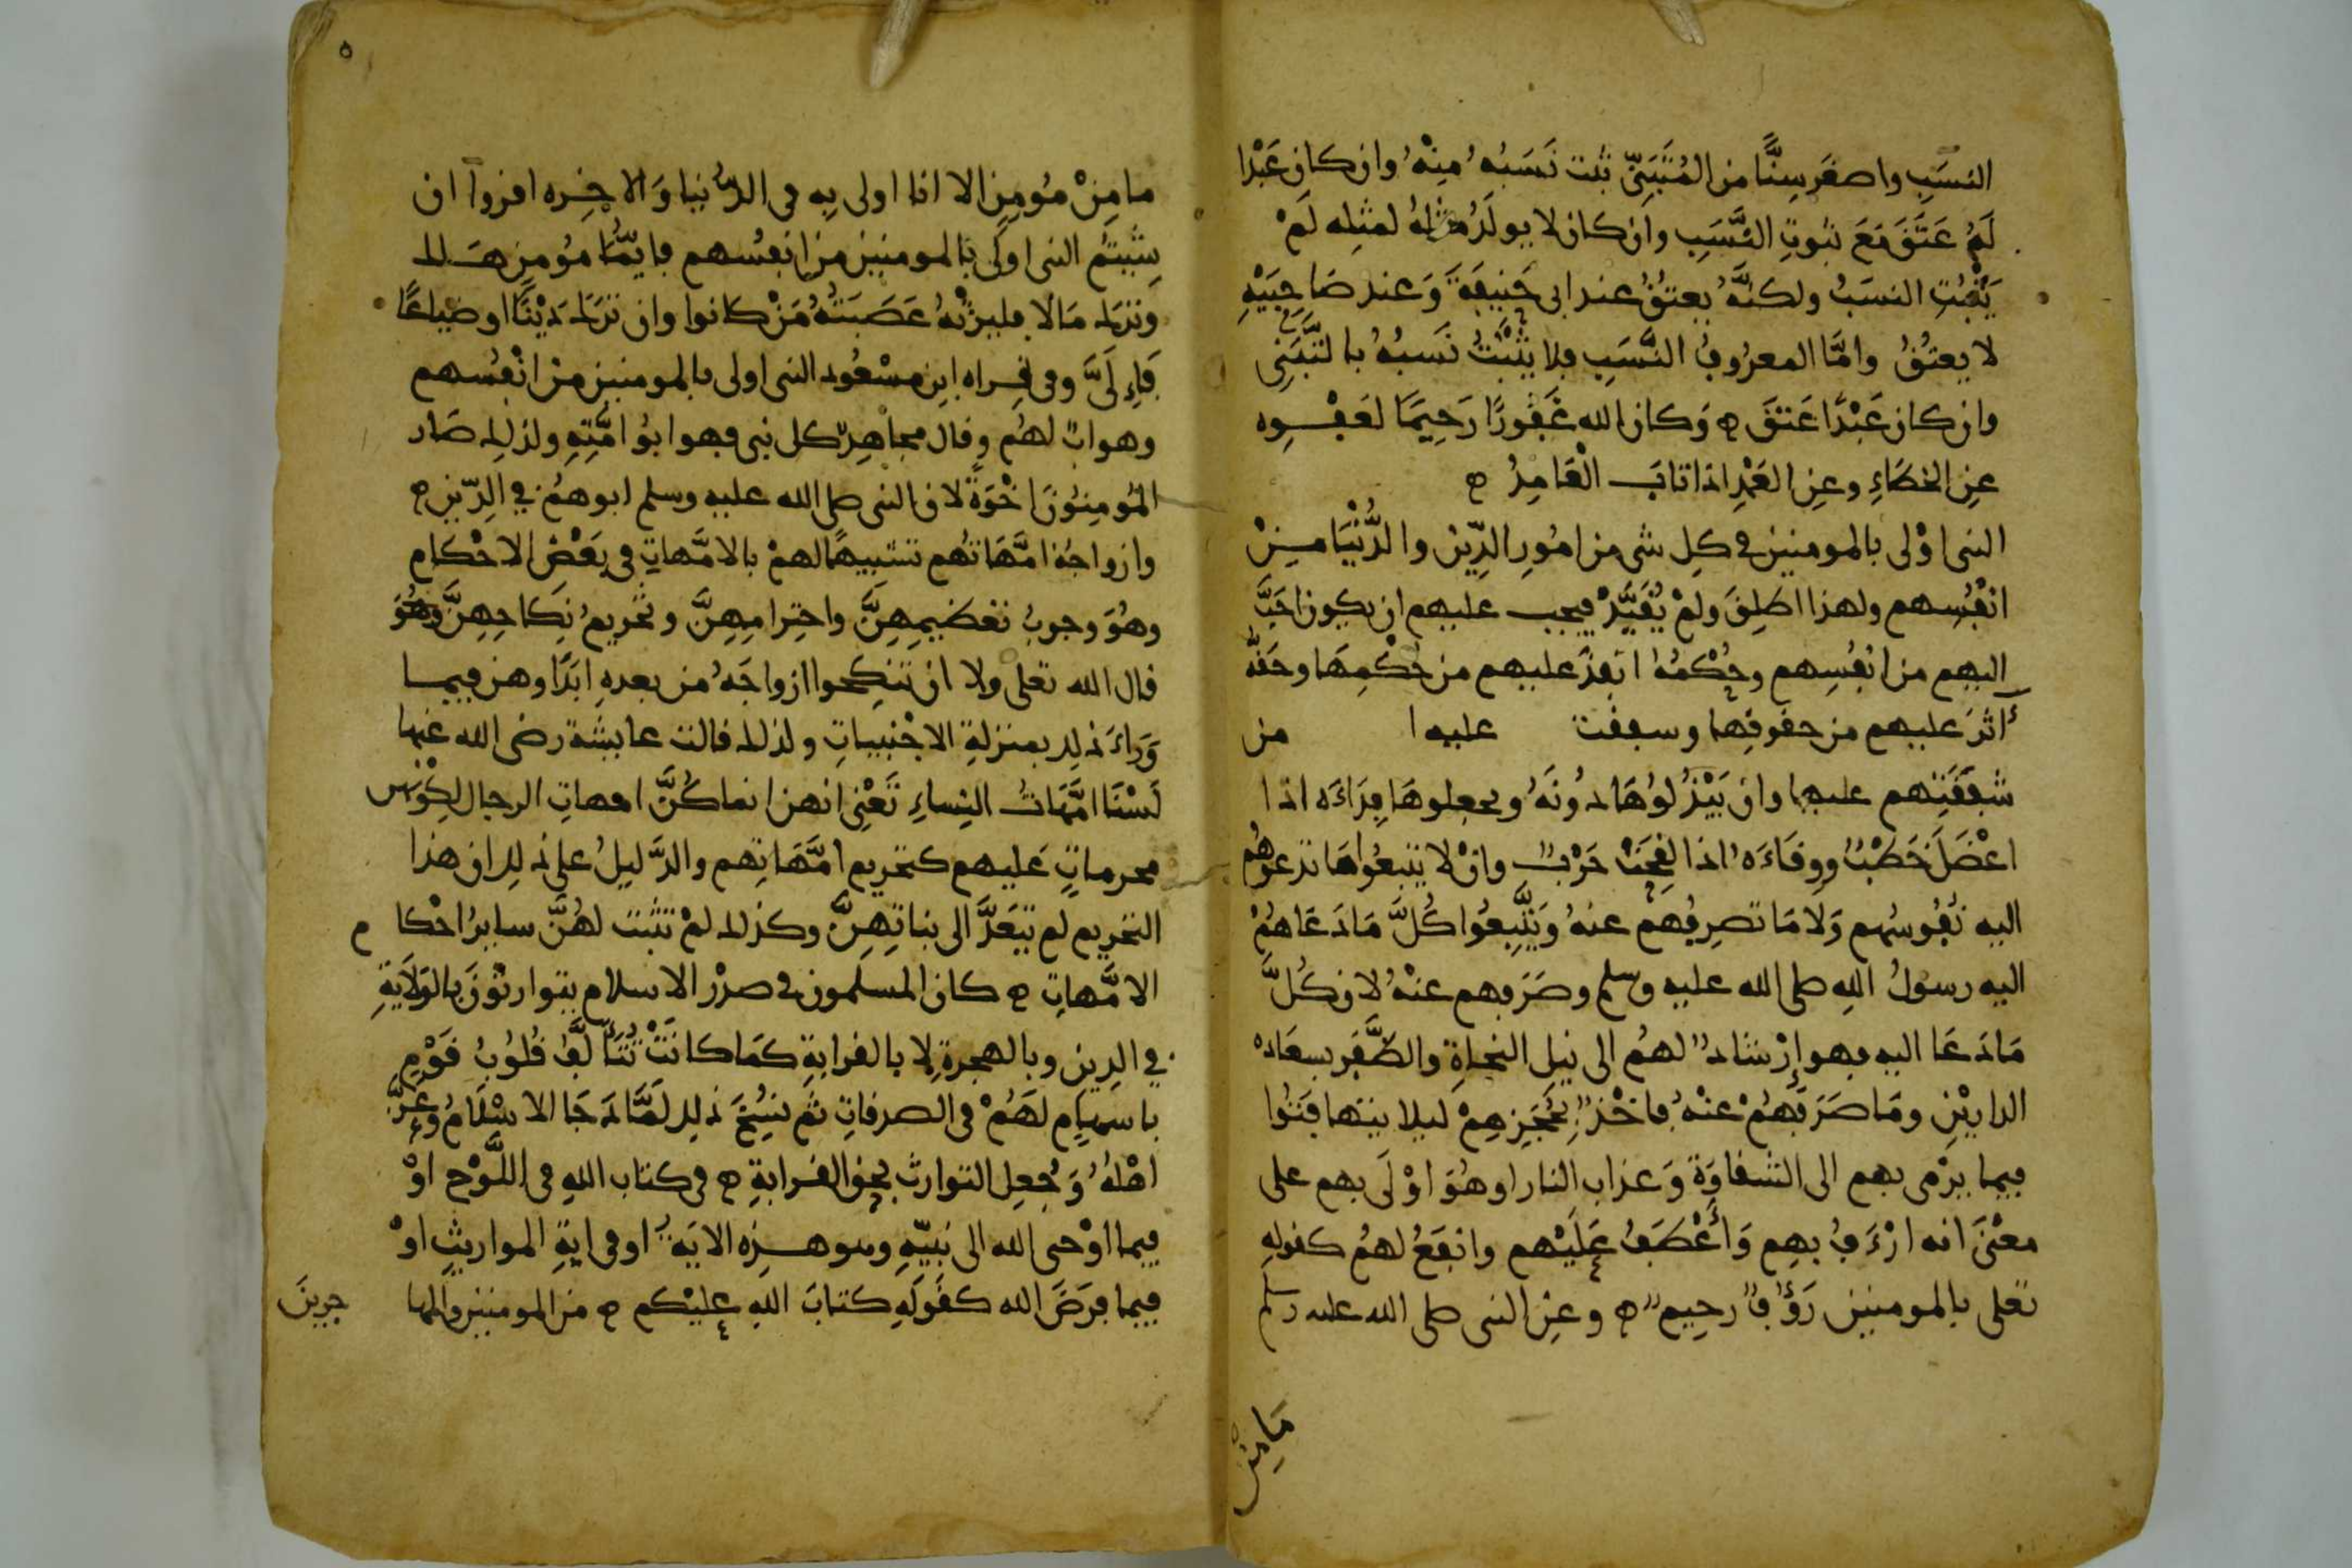 النسَبِ واصغَر سِنًّا من المُتَبَنّى ثبت نَسَبُه مِنْهُ وان كان عَبْدا
لَهُ عَتَقَ مَعَ ثبوتِ النَّسَبِ وان كان لا يولَدُ مثلهُ لمثله لَمْ
يَثْبُتِ النسَبُ ولكنَّهُ يعتِقُ عند ابى حَنيفَةَ وَعند صَاحِبَيْهِ
لا يعتِقُ وامَّا المعرُوفُ النَّسَبِ فلا يثْبُتُ نَسَبُهُ بالتَّبَنِى
وان كان عَبْدًا عَتَقَ ه وَكان الله غَفورًا رَحِيمًا لعَفْوِه
عنِ الخطَاءِ وعنِ العَمْدِ اذا تابَ الْعَامِدُ ه
النبى اوْلى بالمومنين فى كلِ شى من امُورِ الدِّين والدُّنْيَا مِنْ
انْفُسِهم ولهذا اطلِقَ ولمْ يُقَيَّدْ فيجب عليهم ان يكون احَبَّ
اليهم من انفُسِهم وحُكْمُهُ انفذَ عليهم من حُكْمِهَا وحَقُّه
أاثرَ عليهم من حقوقِها وشفقت عليه ا من
شفقَتِهم عليها وان يَبْذُلوُهَا دُونَهُ ويجعلوهَا فِدَاءَه اذا
اعْضَلَ خَطْبٌ ووِقَاءَهُ اذا لقِحَتْ حَرْبٌ وانْ لا يتبعُوا مَا تدعوهُم
اليه نُفُوسُهم وَلَا مَا تصرِفُهم عنهُ وَيَتَّبِعُوا كُلَّ مَا دَعَاهُمْ
اليه رسولُ اللهِ صلى الله عليه وسلم وصَرَفهم عنْهُ لان كُلَّ
مَا دَعَا اليه فهو إرْشَادٌ لهُم الى نيل النجاةِ والظَّفَر بسعَادة
الدارَيْنِ ومَا صَرَفَهُمْ عنْهُ فاخْذٌ بحُجَزِهِمْ ليلا يتهافَتُوا
فيما يرْمى بهم الى الشقاوَةِ وَعذاب النار اوهُوَ اوْلَى بهم على
معْنَى انه ارْءَفُ بهِم وَأَعْطَفُ عَلَيْهم وانفَعُ لهمُ كقوله
تعلى بالمومنين رَؤُفٌ رحِيمٌ ه وعنِ النبى صلى الله عليه وسلم
مَا مِنْ
٥
ما مِنْ مُومِنٍ الا انا اولى بِه فى الدُّنيا وَالاخِره اقروا ان
شِئتُمُ النبى اوْلَى بالمومنين من انفُسهم فايُّمَا مُومِنٍ هَلك
وترَك مَالا فليرثْهُ عَصَبَتُهُ مَنْ كانوا وان ترَك دَيْنًا اوضياعًا
فَإِلَىَّ وفى قِراه ابنِ مسْعُود النبى اولى بالمومنين منْ انْفُسهم
وهو ابٌ لهُم وقال مجاهِدٌ كل نبى فهو ابُو امَّتِهِ ولذلك صَار
المُومِنوُنَ اخْوَةً لان النبى صلى الله عليه وسلم ابوهمُ في الدِّينِ ه
وازواجُهُ امَّهَاتهُم تشبيهًا لهمْ بالامَّهاتِ فى بعْضِ الاحْكامِ
وهُوَ وجوبُ تعْضيمِهِنَّ واحتِرامِهِنَّ وتحريمُ نِكاحِهِنَّ وهُوَ
قال الله تعلى ولا ان تنكِحوا ازواجَهُ من بعدهِ ابَدًا وهن فيما
وَرَاءَ ذلك بمنزلةِ الاجْنَبياتِ ولذلك قالت عايشة رضى الله عنها
لَسْنَا امَّهَاتُ النِساءِ تَعْنِى انهن انما كُنَّ امهاتِ الرجال لكِوْنهن
محرماتٍ عَليهم كتحريمِ امَّهَاتِهم والدَّليلُ على ذلك ان هذا
التحريم لم يتَعَدَّ الى بناتِهِنَّ وكذلك لمْ تثبت لهُنَّ سايرُ احْكام
الامَّهاتِ ه كان المسلمون فى صدْر الاسلام يتوارثوْنَ بالوَلَايةِ
في الدِين وبالهجرةِ لا بالقرابةِ كمَا كانَتْ تُتَأَلَّفُ قُلوُبُ قَوْمٍ
باسْهامٍ لهَمُ فى الصدقاتِ ثم نسُخَ ذلك لمَّا دَجَا الاسْلَامُ وعَزَّ
اهْلُهُ وَجُعِل التوارث بحق القرابةِ ه فى كتاب اللهِ فى اللَّوْح اوْ
فيما اوْحى الله الى نَبِيّهِ وهو هذِه الايَه اوفى ايةِ المواريثِ اوْ
فيما فرَضَ الله كقَولَهِ كتابَ اللهِ عليْكم ه من المومنين والمها
جرينَ